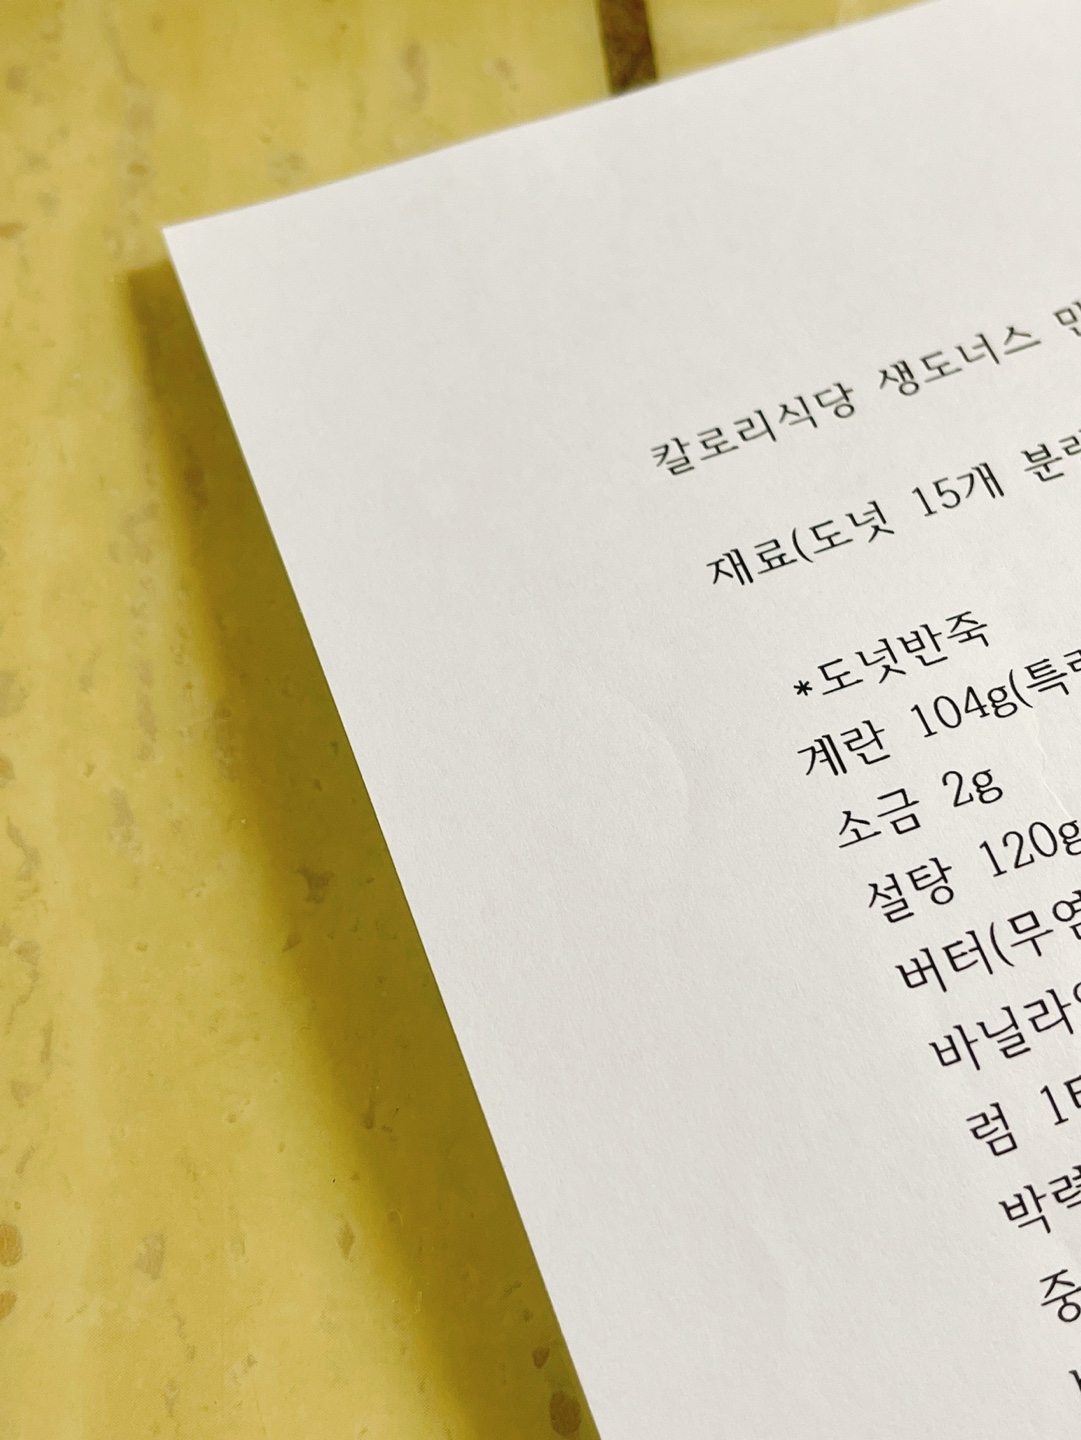 칼로리식당 생도너스
재료(도넛 15개
*도넛반죽
계란 104g(특
소금 2g
설탕 120g
버터(무염
바닐라
럼 1
박력
중